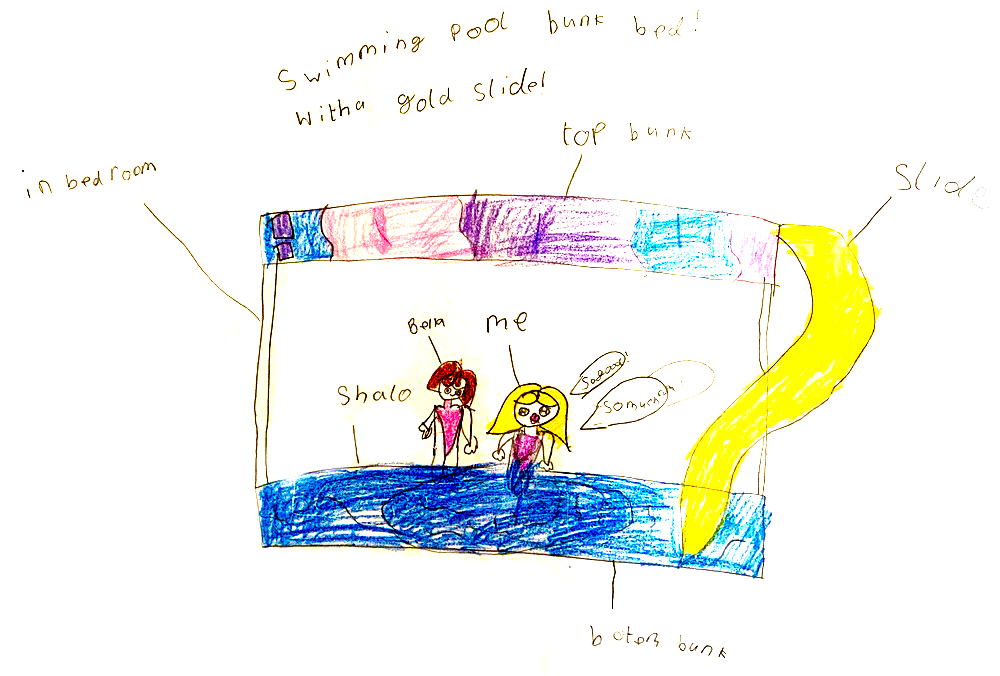 Swimming Pool bunk bed!
with a gold slide!
top bunk
in bedroom
Slide
Bella
me
Shalo
botem bunk